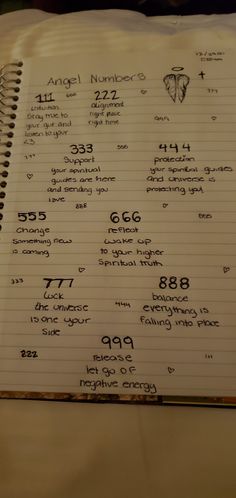 Angel Numbers
111
intuition
Stay true to
your gut and
listen to your
<3
222
alignment
right place
right time
777
999
333
Support
your spiritual
guides are here
and sending you
love
555
444
protection
your spiritual guides
and universe is
protecting you
777
888
555
Change
Something new
is coming
666
reflect
wake up
to your higher
Spiritual truth
666
333
777
Luck
the universe
is one your
side
444
888
balance
everything is
falling into place
999
release
let go of
negative energy
222
111